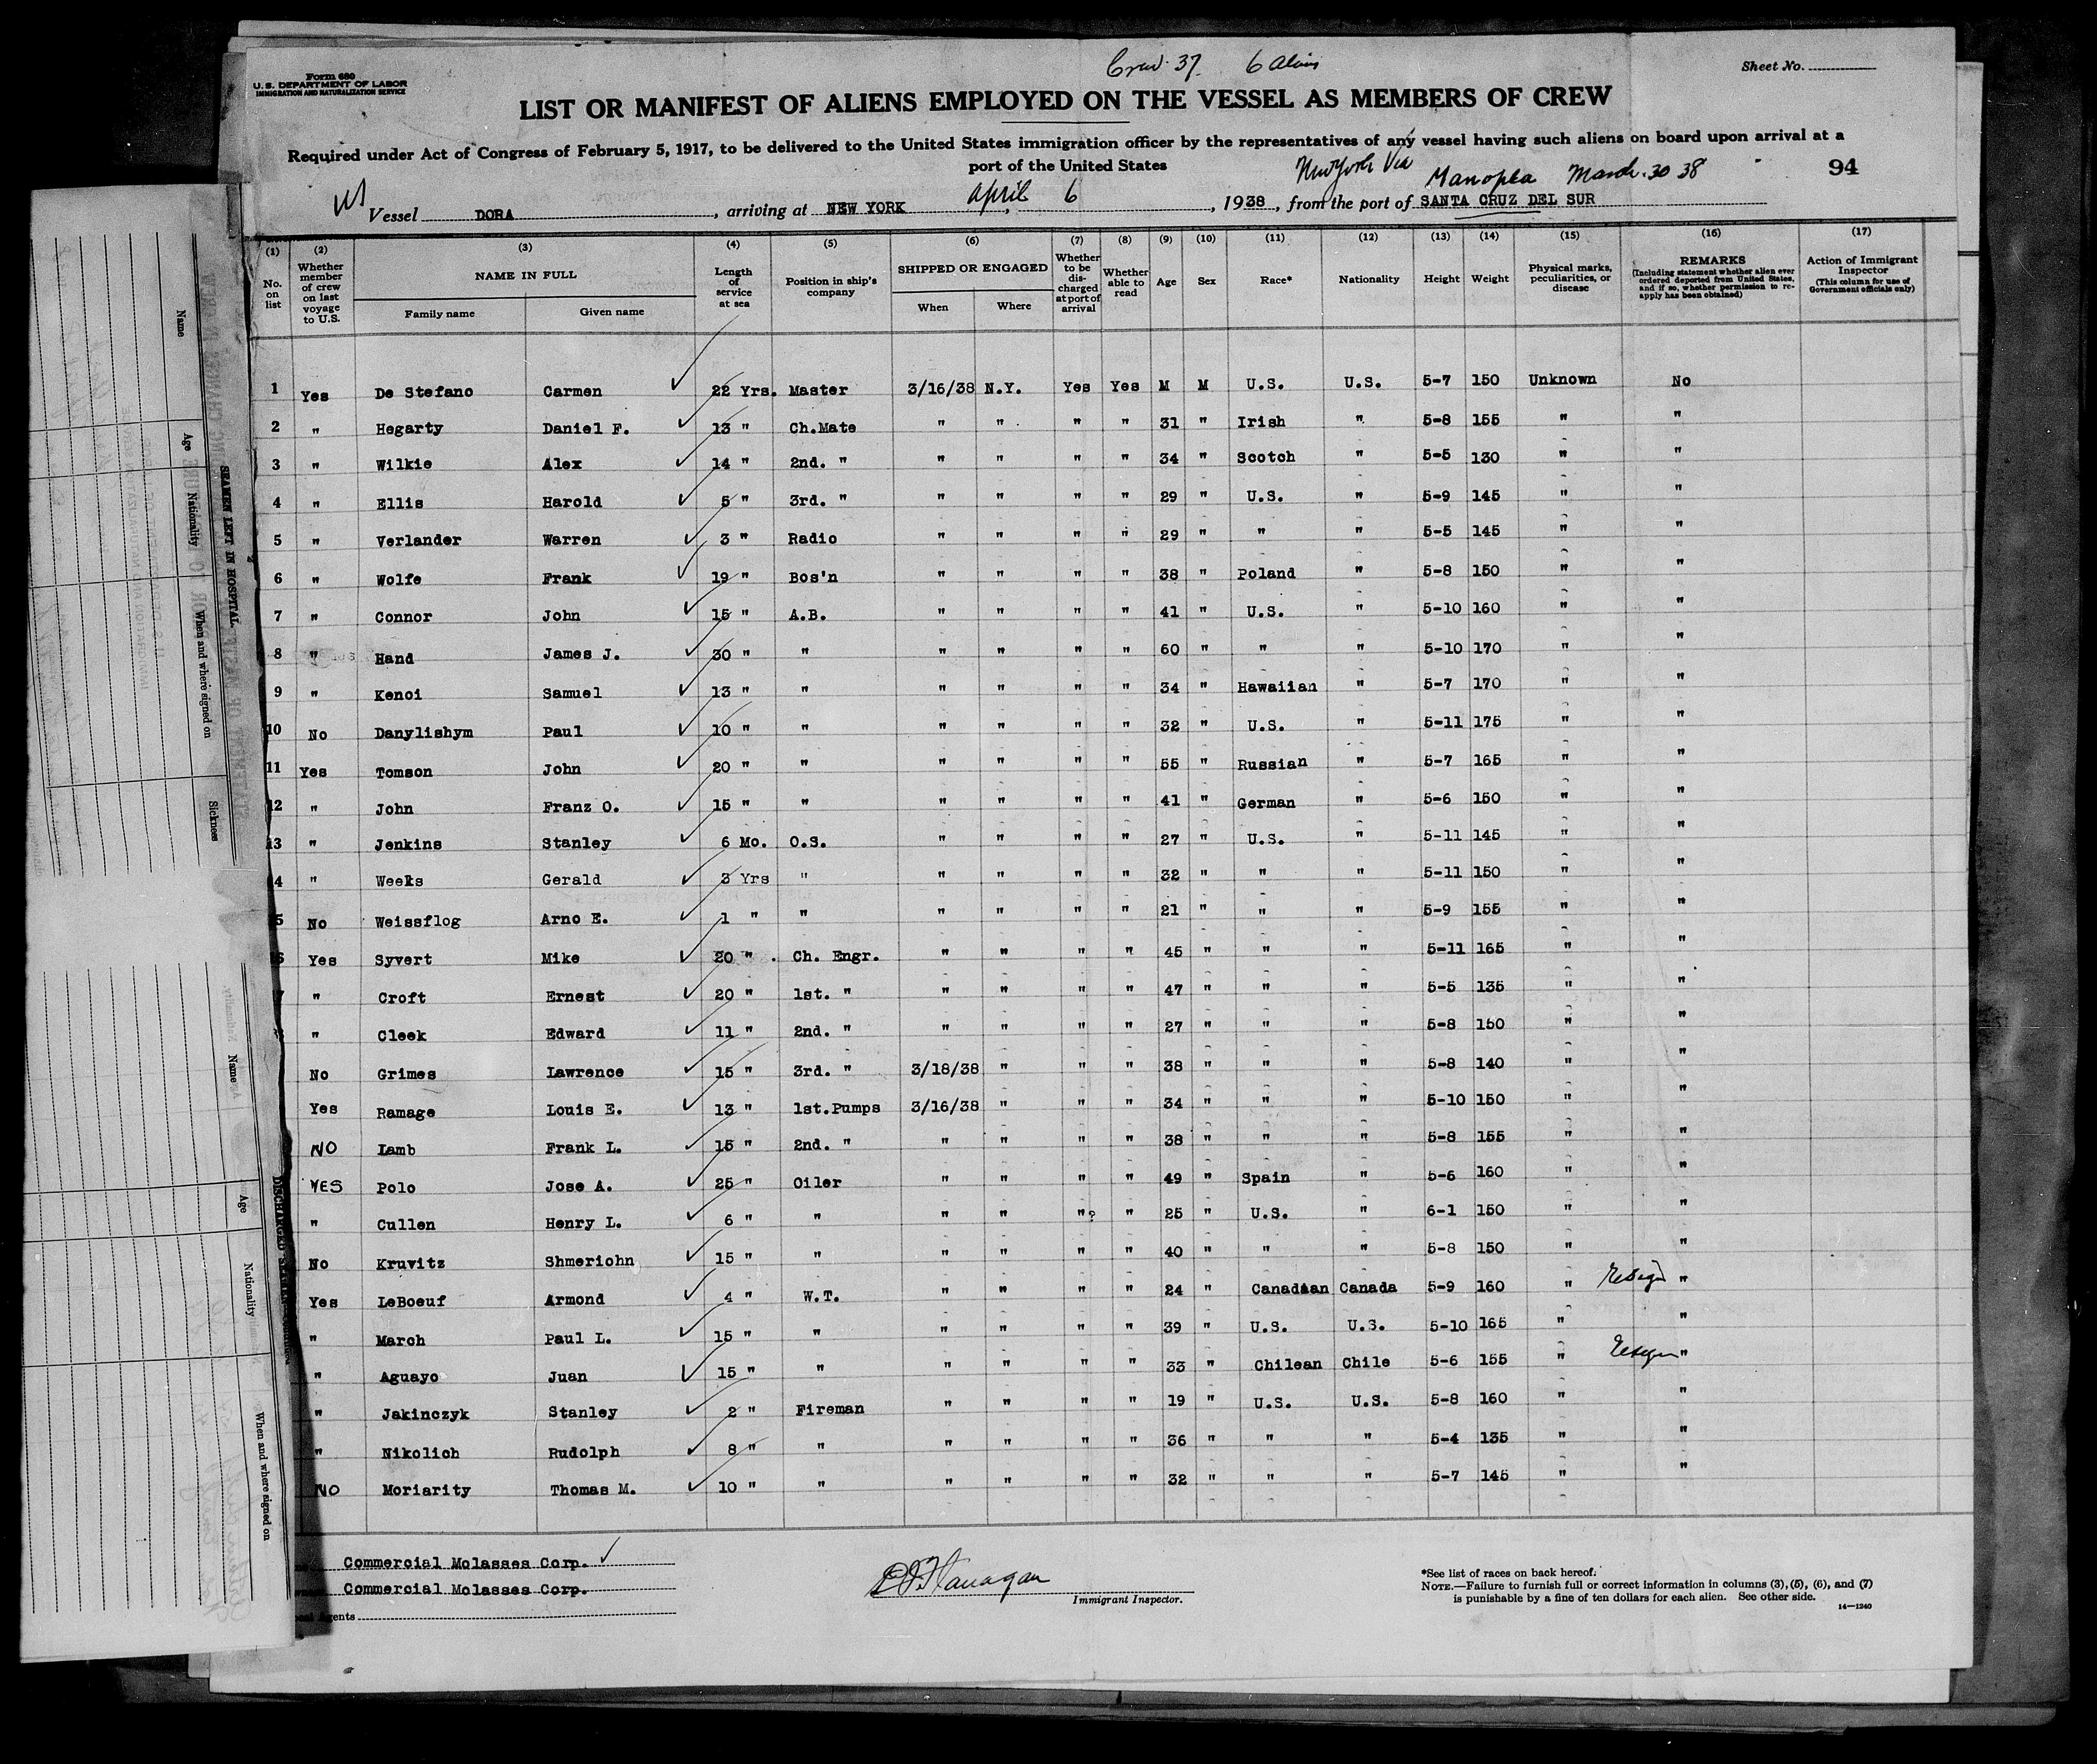 Crew 37. 6 Aliens
Sheet No.
Form 680
U. S. DEPARTMENT OF LABOR
IMMIGRATION AND NATURALIZATION SERVICE
LIST OR MANIFEST OF ALIENS EMPLOYED ON THE VESSEL AS MEMBERS OF CREW
Required under Act of Congress of February 5, 1917, to be delivered to the United States immigration officer by the representatives of any vessel having such aliens on board upon arrival at a
port of the United States
New York Via Manopla March. 30 38
94
Vessel DORA, arriving at NEW YORK, April 6, 1938, from the port of SANTA CRUZ DEL SUR
(1) (2) (3) (4) (5) (6) (7) (8) (9) (10) (11) (12) (13) (14) (15) (16) (17)
No. on list
Whether member of crew on last voyage to U.S.
NAME IN FULL
Family name Given name
Length of service at sea
Position in ship's company
SHIPPED OR ENGAGED
When Where
Whether to be discharged at port of arrival
Whether able to read
Age
Sex
Race*
Nationality
Height
Weight
Physical marks, peculiarities, or disease
REMARKS
(Including statement whether alien ever ordered deported from United States, and if so, whether permission to reapply has been obtained)
Action of Immigrant Inspector
(This column for use of Government officials only)
1 Yes De Stefano Carmen 22 Yrs. Master 3/16/38 N.Y. Yes Yes M M U.S. U.S. 5-7 150 Unknown No
2 " Hegarty Daniel F. 13 " Ch.Mate " " " " 31 " Irish " 5-8 155 " "
3 " Wilkie Alex 14 " 2nd. " " " " " 34 " Scotch " 5-5 130 " "
4 " Ellis Harold 5 " 3rd. " " " " " 29 " U.S. " 5-9 145 " "
5 " Verlander Warren 3 " Radio " " " " 29 " " " 5-5 145 " "
6 " Wolfe Frank 19 " Bos'n " " " " 38 " Poland " 5-8 150 " "
7 " Connor John 15 " A.B. " " " " 41 " U.S. " 5-10 160 " "
8 " Hand James J. 30 " " " " " " 60 " " " 5-10 170 " "
9 " Kenoi Samuel 13 " " " " " " 34 " Hawaiian " 5-7 170 " "
10 No Danylishym Paul 10 " " " " " " 32 " U.S. " 5-11 175 " "
11 Yes Tomson John 20 " " " " " " 55 " Russian " 5-7 165 " "
12 " John Franz O. 15 " " " " " " 41 " German " 5-6 150 " "
13 " Jenkins Stanley 6 Mo. O.S. " " " " 27 " U.S. " 5-11 145 " "
4 " Weeks Gerald 3 Yrs " " " " " 32 " " " 5-11 150 " "
5 No Weissflog Arno E. 1 " " " " " " 21 " " " 5-9 155 " "
6 Yes Syvert Mike 20 " . Ch. Engr. " " " " 45 " " " 5-11 165 " "
" Croft Ernest 20 " 1st. " " " " " 47 " " " 5-5 135 " "
" Cleek Edward 11 " 2nd. " " " " " 27 " " " 5-8 150 " "
No Grimes Lawrence 15 " 3rd. " 3/18/38 " " " 38 " " " 5-8 140 " "
Yes Ramage Louis E. 13 " 1st.Pumps 3/16/38 " " " 34 " " " 5-10 150 " "
NO Lamb Frank L. 15 " 2nd. " " " " " 38 " " " 5-8 155 " "
YES Polo Jose A. 25 " Oiler " " " " 49 " Spain " 5-6 160 " "
" Cullen Henry L. 6 " " " " "? " 25 " U.S. " 6-1 150 " "
No Kruvitz Shmeriohn 15 " " " " " " 40 " " " 5-8 150 " "
Yes LeBoeuf Armond 4 " W.T. " " " " 24 " Canadian Canada 5-9 160 " resign "
" March Paul L. 15 " " " " " " 39 " U.S. U.S. 5-10 165 " "
" Aguayo Juan 15 " " " " " " 33 " Chilean Chile 5-6 155 " resign "
" Jakinczyk Stanley 2 " Fireman " " " " 19 " U.S. U.S. 5-8 160 " "
" Nikolich Rudolph 8 " " " " " " 36 " " " 5-4 135 " "
NO Moriarity Thomas M. 10 " " " " " " 32 " " " 5-7 145 " "
Commercial Molasses Corp.
Commercial Molasses Corp.
Agents
Flanagan
Immigrant Inspector.
*See list of races on back hereof.
NOTE.—Failure to furnish full or correct information in columns (3), (5), (6), and (7)
is punishable by a fine of ten dollars for each alien. See other side.
14—1240
SEAMEN LEFT IN HOSPITAL
Name
Age
Nationality
When and where signed on
Sickness
Name
Age
Nationality
When and where signed on